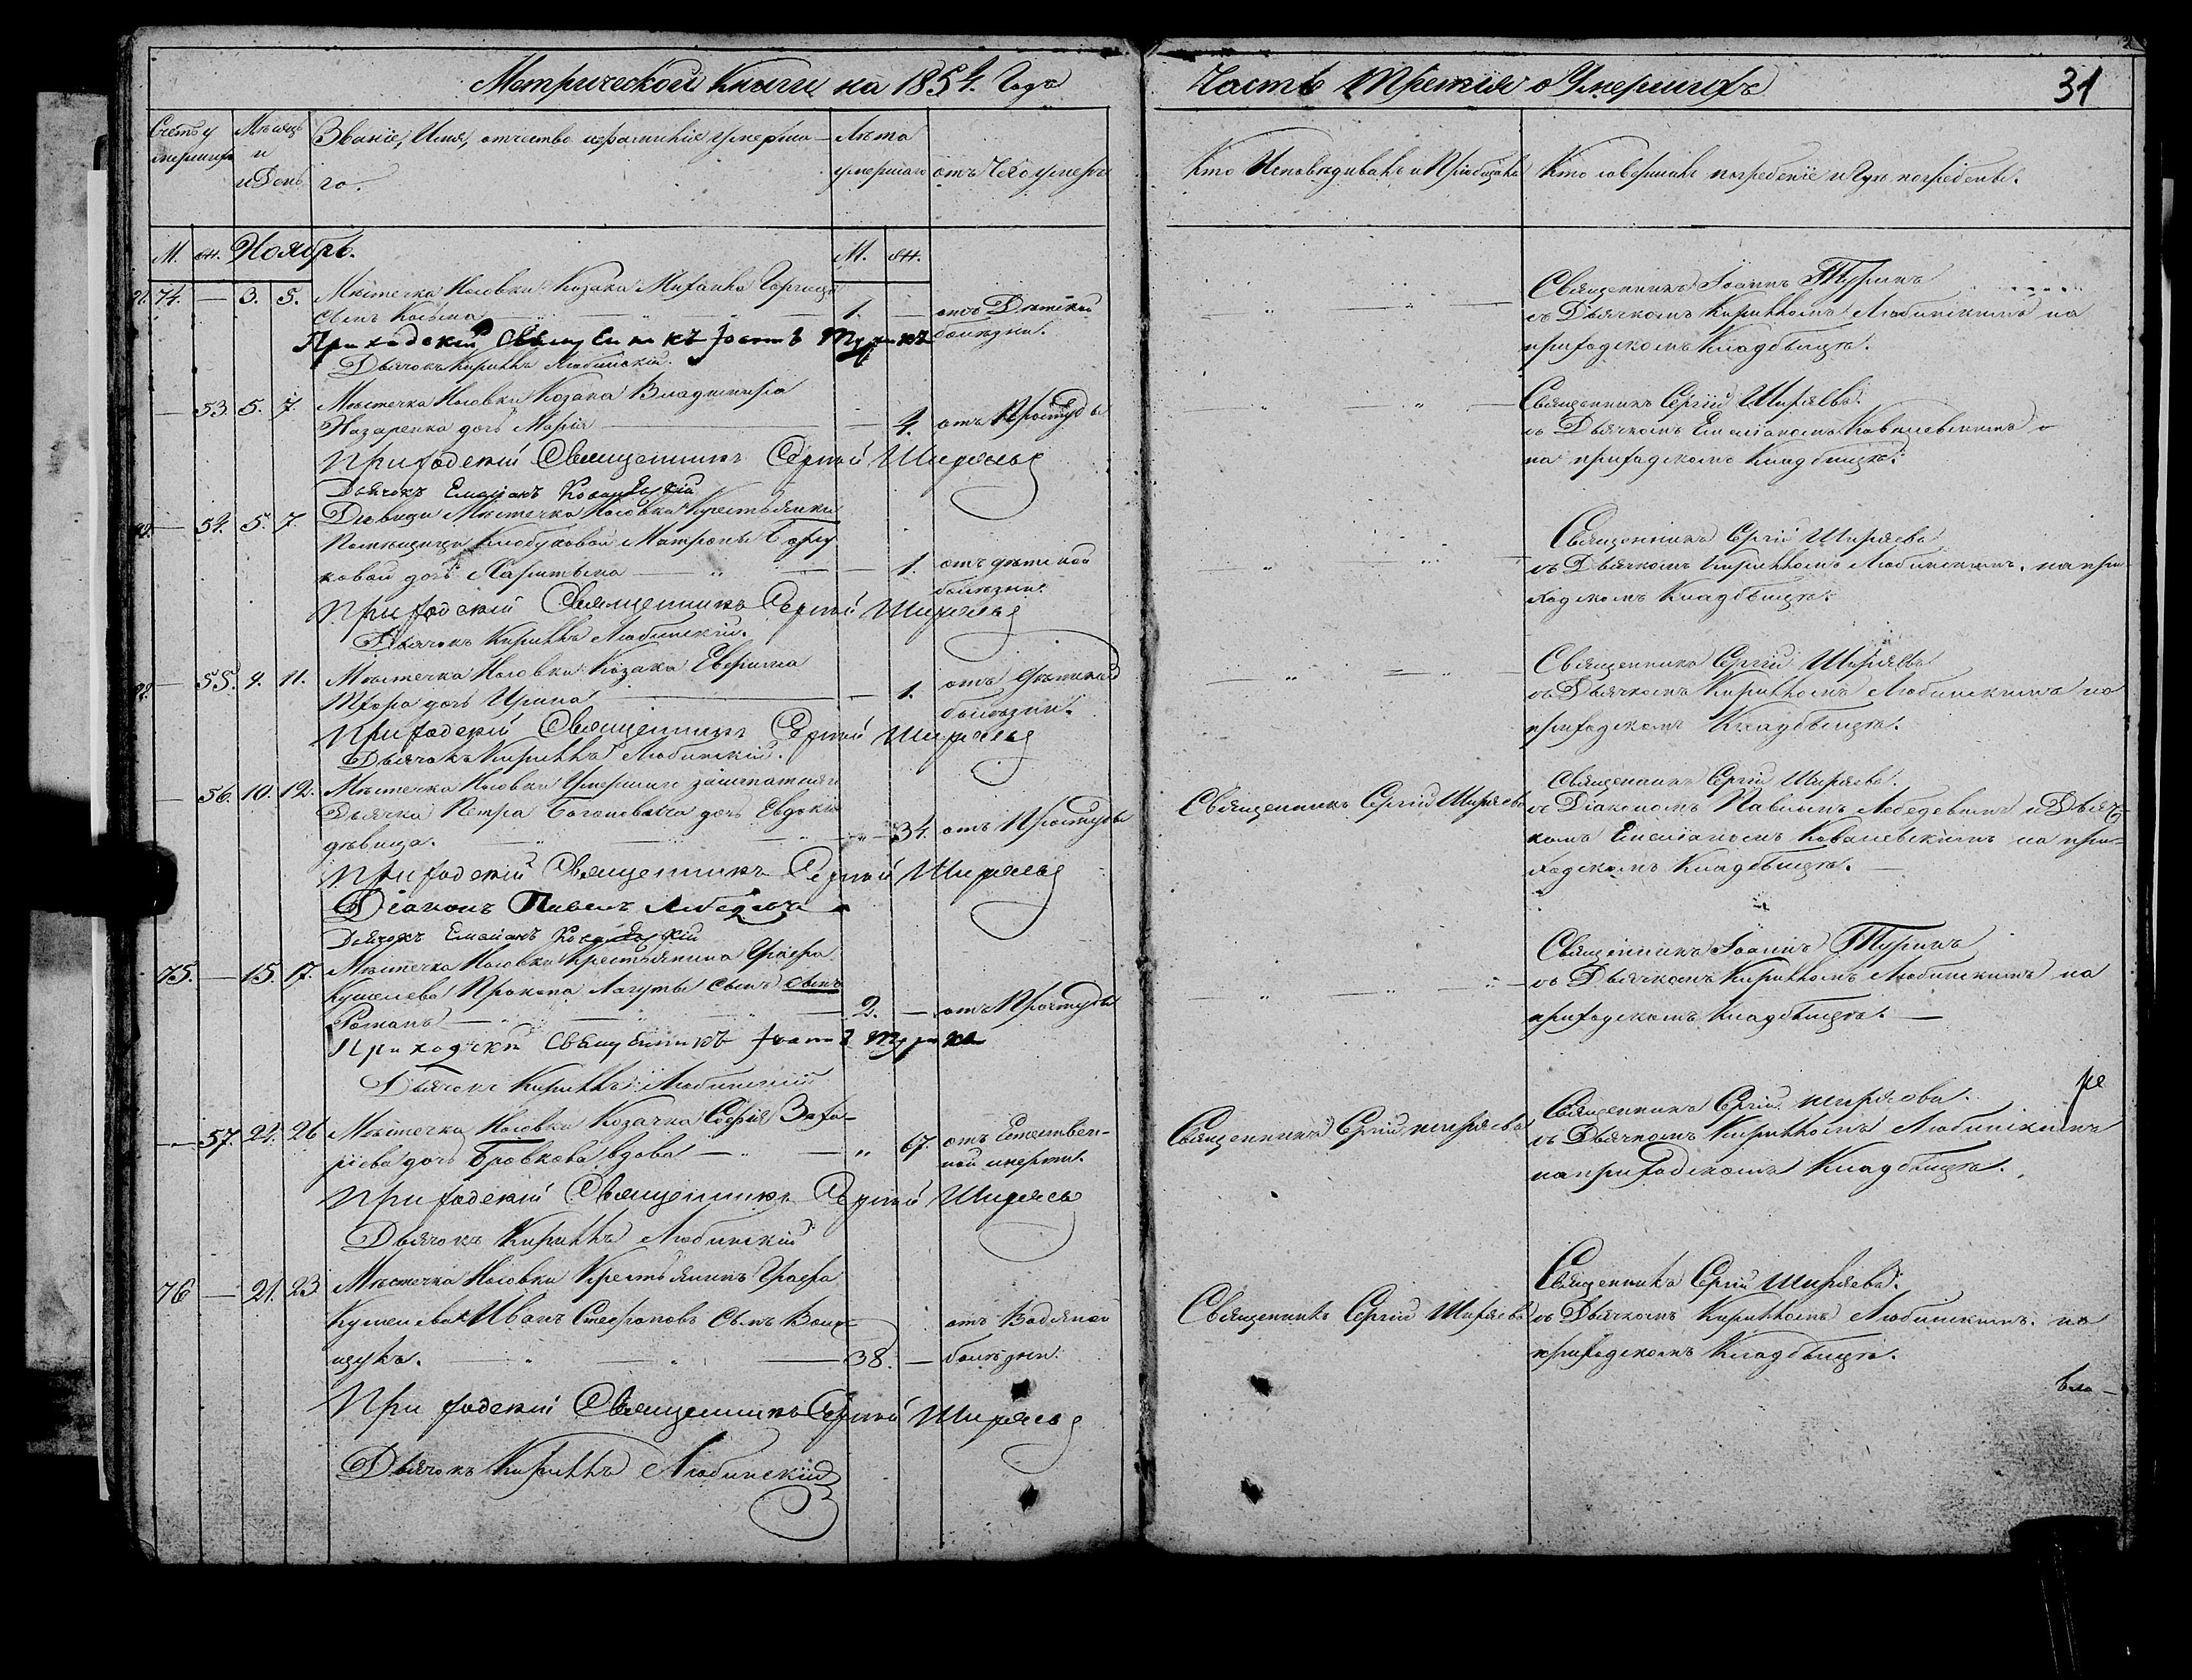 Метрической Книги на 1854. Годъ
Часть Третія о Умершихъ
31
Счетъ умершихъ
Мѣсяцъ и День
Званіе, Имя, отчество и фамилія умерша-
го.
Лѣта умершаго
отъ Чего умеръ
Кто Исповѣдивалъ и Пріобщалъ
Кто совершалъ погребеніе и Гдѣ погребены.
М. Ж. Ноябрь. М. Ж.
74. — 3. 5. Мѣстечка Носовки Козака Михаила
сынъ Косьма 1. — отъ Дѣтской
болѣзни.
Приходскій Священникъ Іоаннъ Туринъ
Дьячокъ Кириллъ Любинскій.
Священникъ Іоаннъ Туринъ
съ Дьячкомъ Кирилломъ Любинскимъ на
приходскомъ Кладбищѣ.
— 53. 5. 7. Мѣстечка Носовки Козака Владимира
Назаренка дочь Марія — 4. отъ Простуды
Приходскій Священникъ Сергій Ширяевъ
Дьячокъ Емеліанъ Ковалевскій
Священникъ Сергій Ширяевъ.
съ Дьячкомъ Емеліаномъ Ковалевскимъ
на приходскомъ Кладбищѣ.
— 54. 5. 7. Дѣвицы Мѣстечка Носовки Крестьянки
Помѣщицы Клобуковой Матроны
ковой дочь Харитына — 1. отъ дѣтской
болѣзни.
Приходскій Священникъ Сергій Ширяевъ
Дьячокъ Кириллъ Любинскій.
Священникъ Сергій Ширяевъ
съ Дьячкомъ Кирилломъ Любинскимъ. на при-
ходскомъ Кладбищѣ.
— 55. 9. 11. Мѣстечка Носовки Козака
дочь Ирина — 1. отъ дѣтской
болѣзни.
Приходскій Священникъ Сергій Ширяевъ
Дьячокъ Кириллъ Любинскій.
Священникъ Сергій Ширяевъ
съ Дьячкомъ Кирилломъ Любинскимъ на
приходскомъ Кладбищѣ.
— 56. 10. 12. Мѣстечка Носовки Умершаго заштатнаго
Дьячка Петра дочь Евдокія
дѣвица. — 34. отъ Простуды
Приходскій Священникъ Сергій Ширяевъ
Діаконъ Павелъ Лебедевъ
Дьячокъ Емеліанъ Ковалевскій
Священникъ Сергій Ширяевъ
Священникъ Сергій Ширяевъ.
съ Діакономъ Павломъ Лебедевымъ и Дьяч-
комъ Емеліаномъ Ковалевскимъ на при-
ходскомъ Кладбищѣ.
75. — 15. 17. Мѣстечка Носовки крестьянина Графа
Кушелева Прокопа Лагуты сынъ сынъ
Романъ 2. — отъ Простуды
Приходскій Священникъ Іоаннъ Туринъ
Дьячокъ Кириллъ Любинскій
Священникъ Іоаннъ Туринъ
съ Дьячкомъ Кирилломъ Любинскимъ на
приходскомъ Кладбищѣ.
— 57. 24. 26 Мѣстечка Носовки Козачка Софія Заха-
ріева дочь Бровкова вдова „ 67. отъ Естествен-
ной смерти.
Приходскій Священникъ Сергій Ширяевъ
Дьячокъ Кириллъ Любинскій
Священникъ Сергій Ширяевъ
Священникъ Сергій Ширяевъ.
съ Дьячкомъ Кирилломъ Любинскимъ
на приходскомъ Кладбищѣ.
76 — 21. 23. Мѣстечка Носовки Крестьянинъ Графа
Кушелева Иванъ Стефановъ сынъ
38. — отъ Водяной
болѣзни.
Приходскій Священникъ Сергій Ширяевъ
Дьячокъ Кириллъ Любинскій
Священникъ Сергій Ширяевъ
Священникъ Сергій Ширяевъ.
съ Дьячкомъ Кирилломъ Любинскимъ. на
приходскомъ Кладбищѣ.